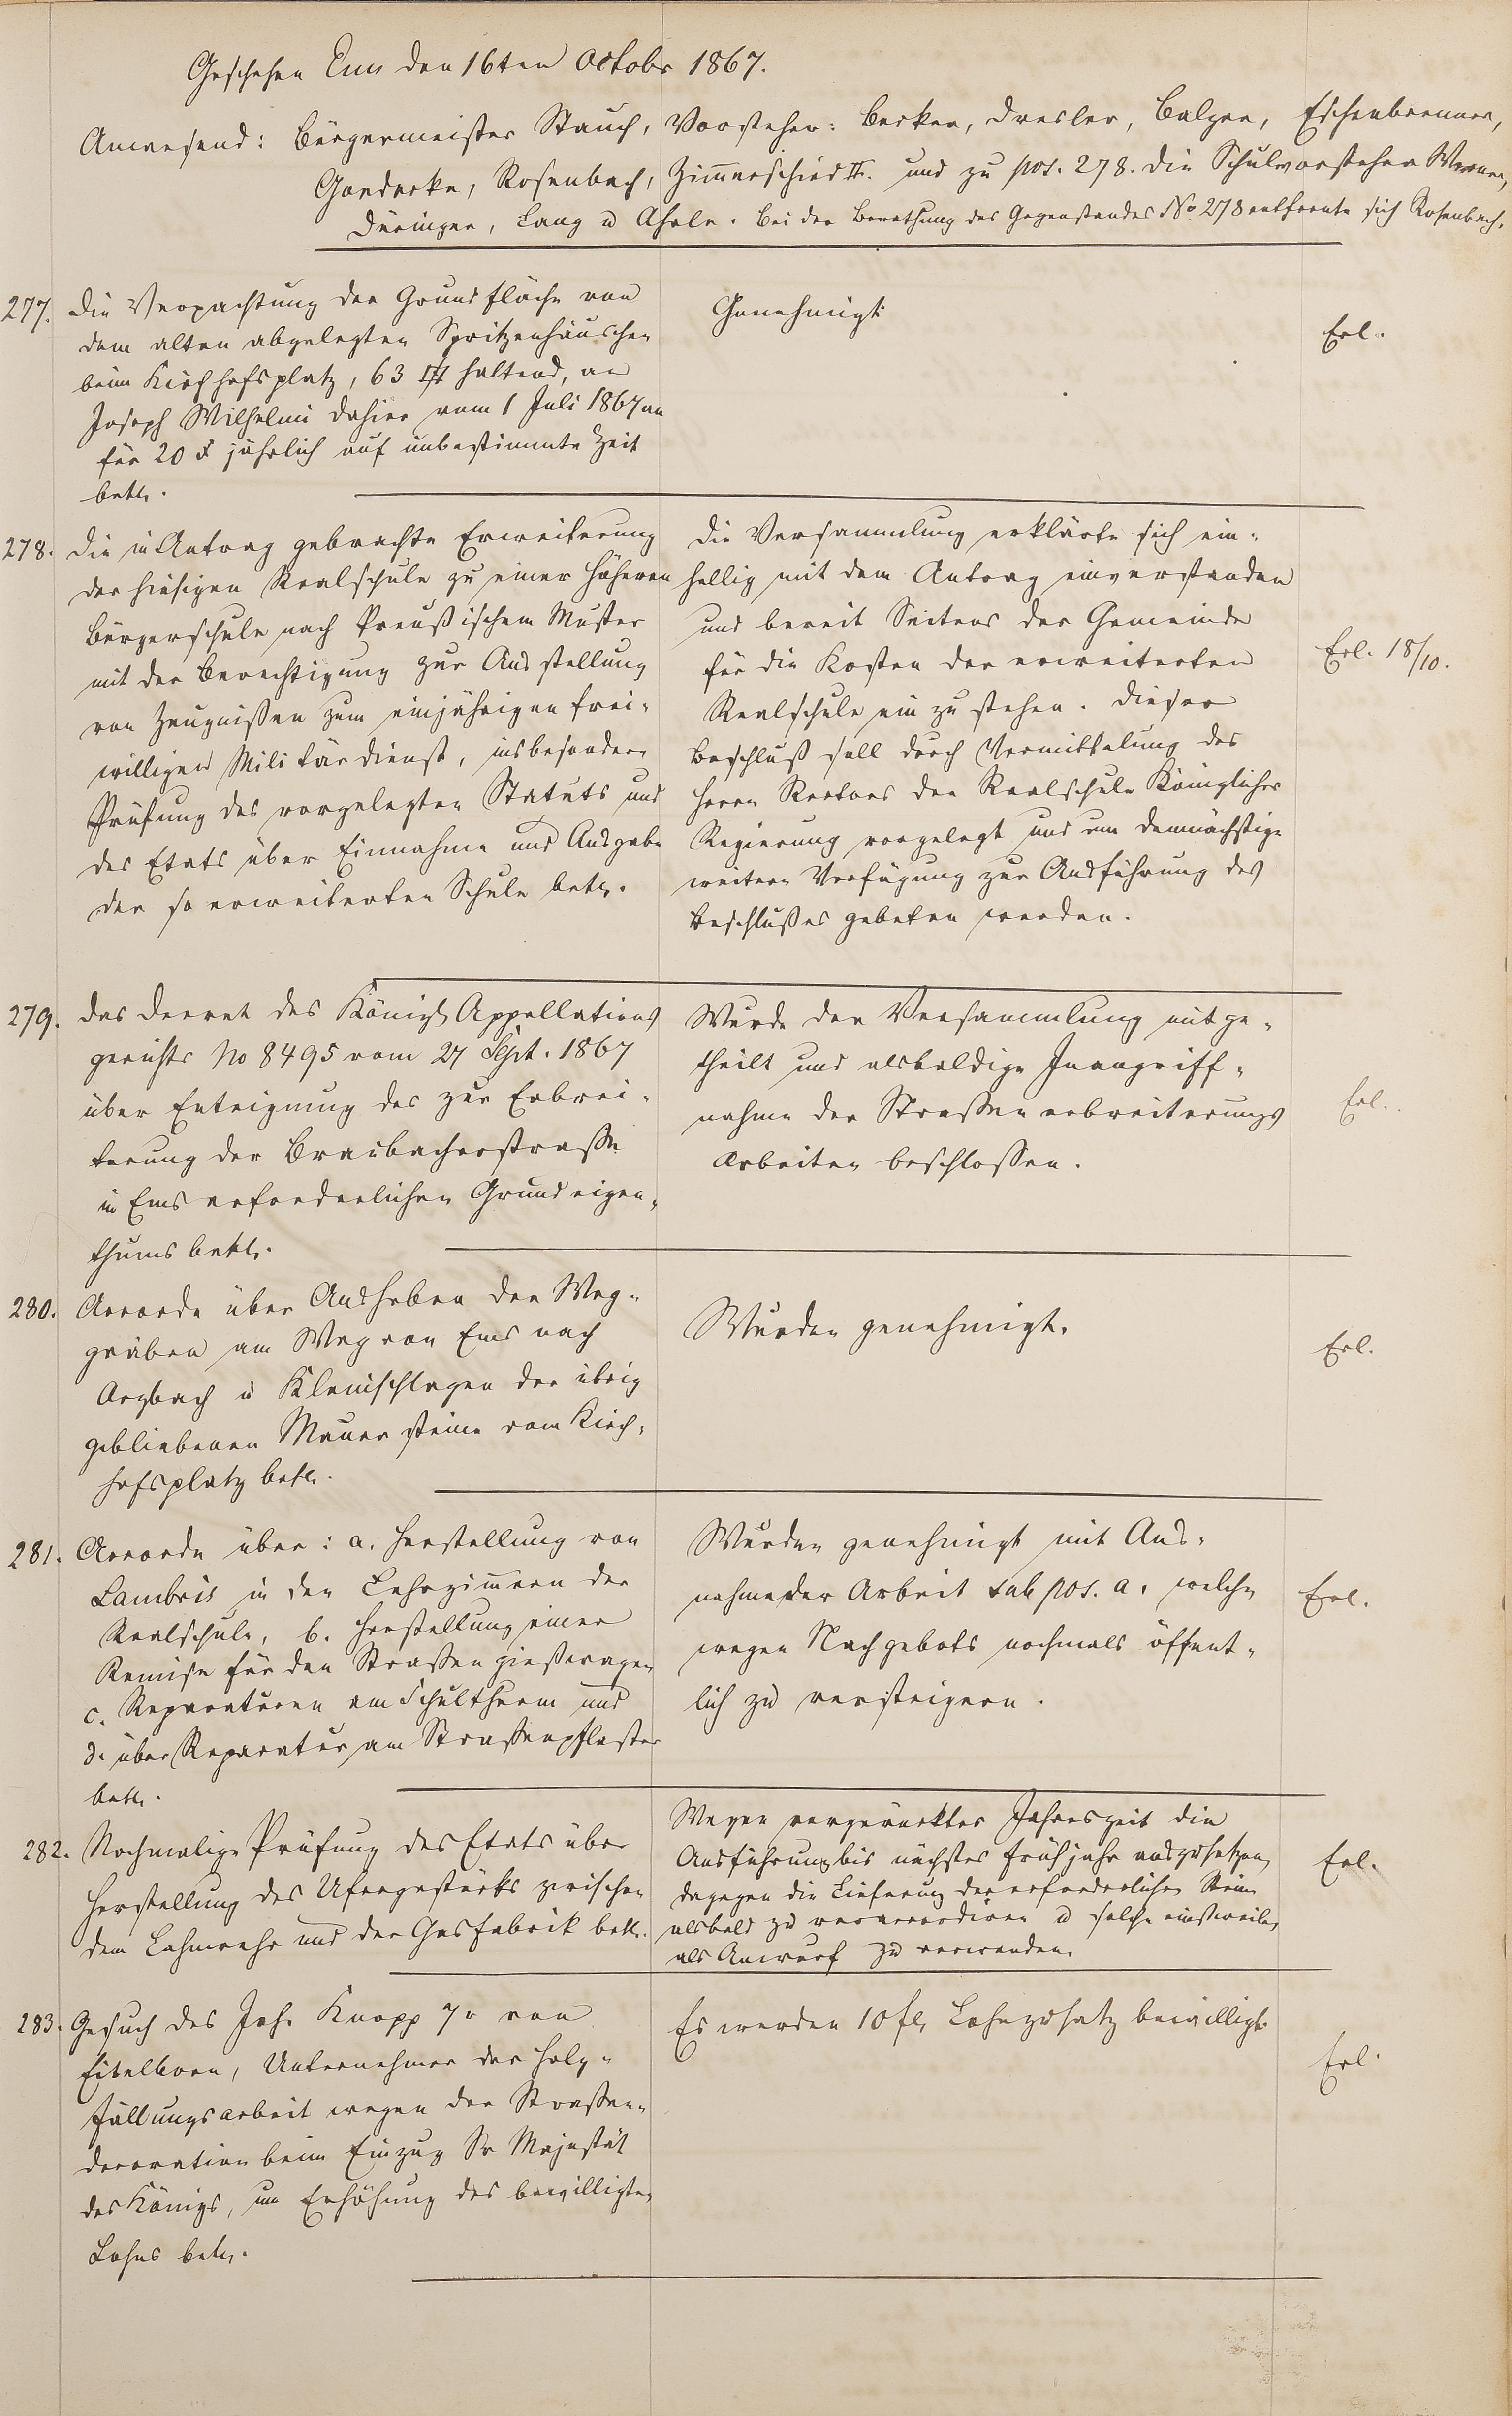 Geschehen Ems den 16ten Octobr 1867.
Anwesend: Bürgermeister Stauch, Vorsteher: Becker, Dresler, Balzer, Eschenbrenner,
Gördecke, Rosenbach, Zimmerschied II. und zu pos. 278. die Schulvorsteher Werner,
Düringer, Lang u Ahole. Bei der Berathung des Gegenstandes No 278 entfernte sich Rosenbach.
277. Die Verpachtung der Grundfläche von
dem alten abgelegten Spritzenhäuschen
beim Kirchhofsplatz, 63 haltend, an
Joseph Wilhelmi dahier vom 1 Juli 1867 an
für 20 x jährlich auf unbestimmte Zeit
betr.
Genehmigt
Erl.
278. Die in Antrag gebrachte Erweiterung
der hiesigen Realschule zu einer höheren
Bürgerschule nach Preußischem Muster
mit der Berechtigung zur Ausstellung
von Zeugnißen zum einjährigen frei-
willigen Militärdienst, insbesondere
Prüfung des vorgelegten Statuts und
des Etats über Einnahme und Ausgabe
der so erweiterten Schule betr.
Die Versammlung erklärte sich ein-
hellig mit dem Antrag einverstanden
und bereit Seitens der Gemeinde
für die Kosten der erweiterten
Realschule ein zu stehen. Dieser
Beschluß soll durch Vermittelung des
Herrn Rectors der Realschule Königlicher
Regierung vorgelegt und um demnächstige
weitere Verfügung zur Ausführung des
Beschlußes gebeten werden.
Erl. 18/10.
279. Das Decret des Königl. Appellations
gerichts No 8495 vom 27 Sept. 1867
über Enteignung des zur Erbrei-
terung der Braubacherstraße
in Ems erforderlichen Grundeigen-
thums betr.
Wurde der Versammlung mitge-
theilt und alsbaldige Inangriff-
nahme der Straßenerbreiterungs
Arbeiten beschlossen.
Erl.
280. Accorde über Ausheben der Weg-
gräben am Weg von Ems nach
Arzbach u Kleinschlagen der übrig
gebliebenen Mauersteine vom Kirch-
hofsplatz betr.
Wurden genehmigt.
Erl.
281. Accorde über: a. Herstellung von
Lambris in den Lehrzimmern der
Realschule, b. Herstellung einer
Remise für den Straßengießwagen
c. Reparaturen am Schulthurm und
d. über Reparatur am Straßenpflaster
betr.
Wurden genehmigt mit Aus-
nahme der Arbeit sub pos. a. welche
wegen Nachgebots nochmals öffent-
lich zu versteigern.
Erl.
282. Nochmalige Prüfung des Etats über
Herstellung des Ufergestücks zwischen
dem Lahnwehr und der Gasfabrik betr.
Wegen vorgerückter Jahreszeit die
Ausführung bis nächstes Frühjahr auszusetzen,
dagegen die Lieferung der erforderlichen Steine
alsbald zu veraccordiren u solche einstweilen
als Anwurf zu verwenden.
Erl.
283. Gesuch des Joh. Knopp 7r von
Eitelborn, Unternehmer der Holz-
fällungsarbeit wegen der Straßen-
decoration beim Einzug Sr Majestät
des Königs, um Erhöhung des bewilligten
Lohns betr.
Es werden 10 fl. Lohnzusatz bewilligt
Erl.